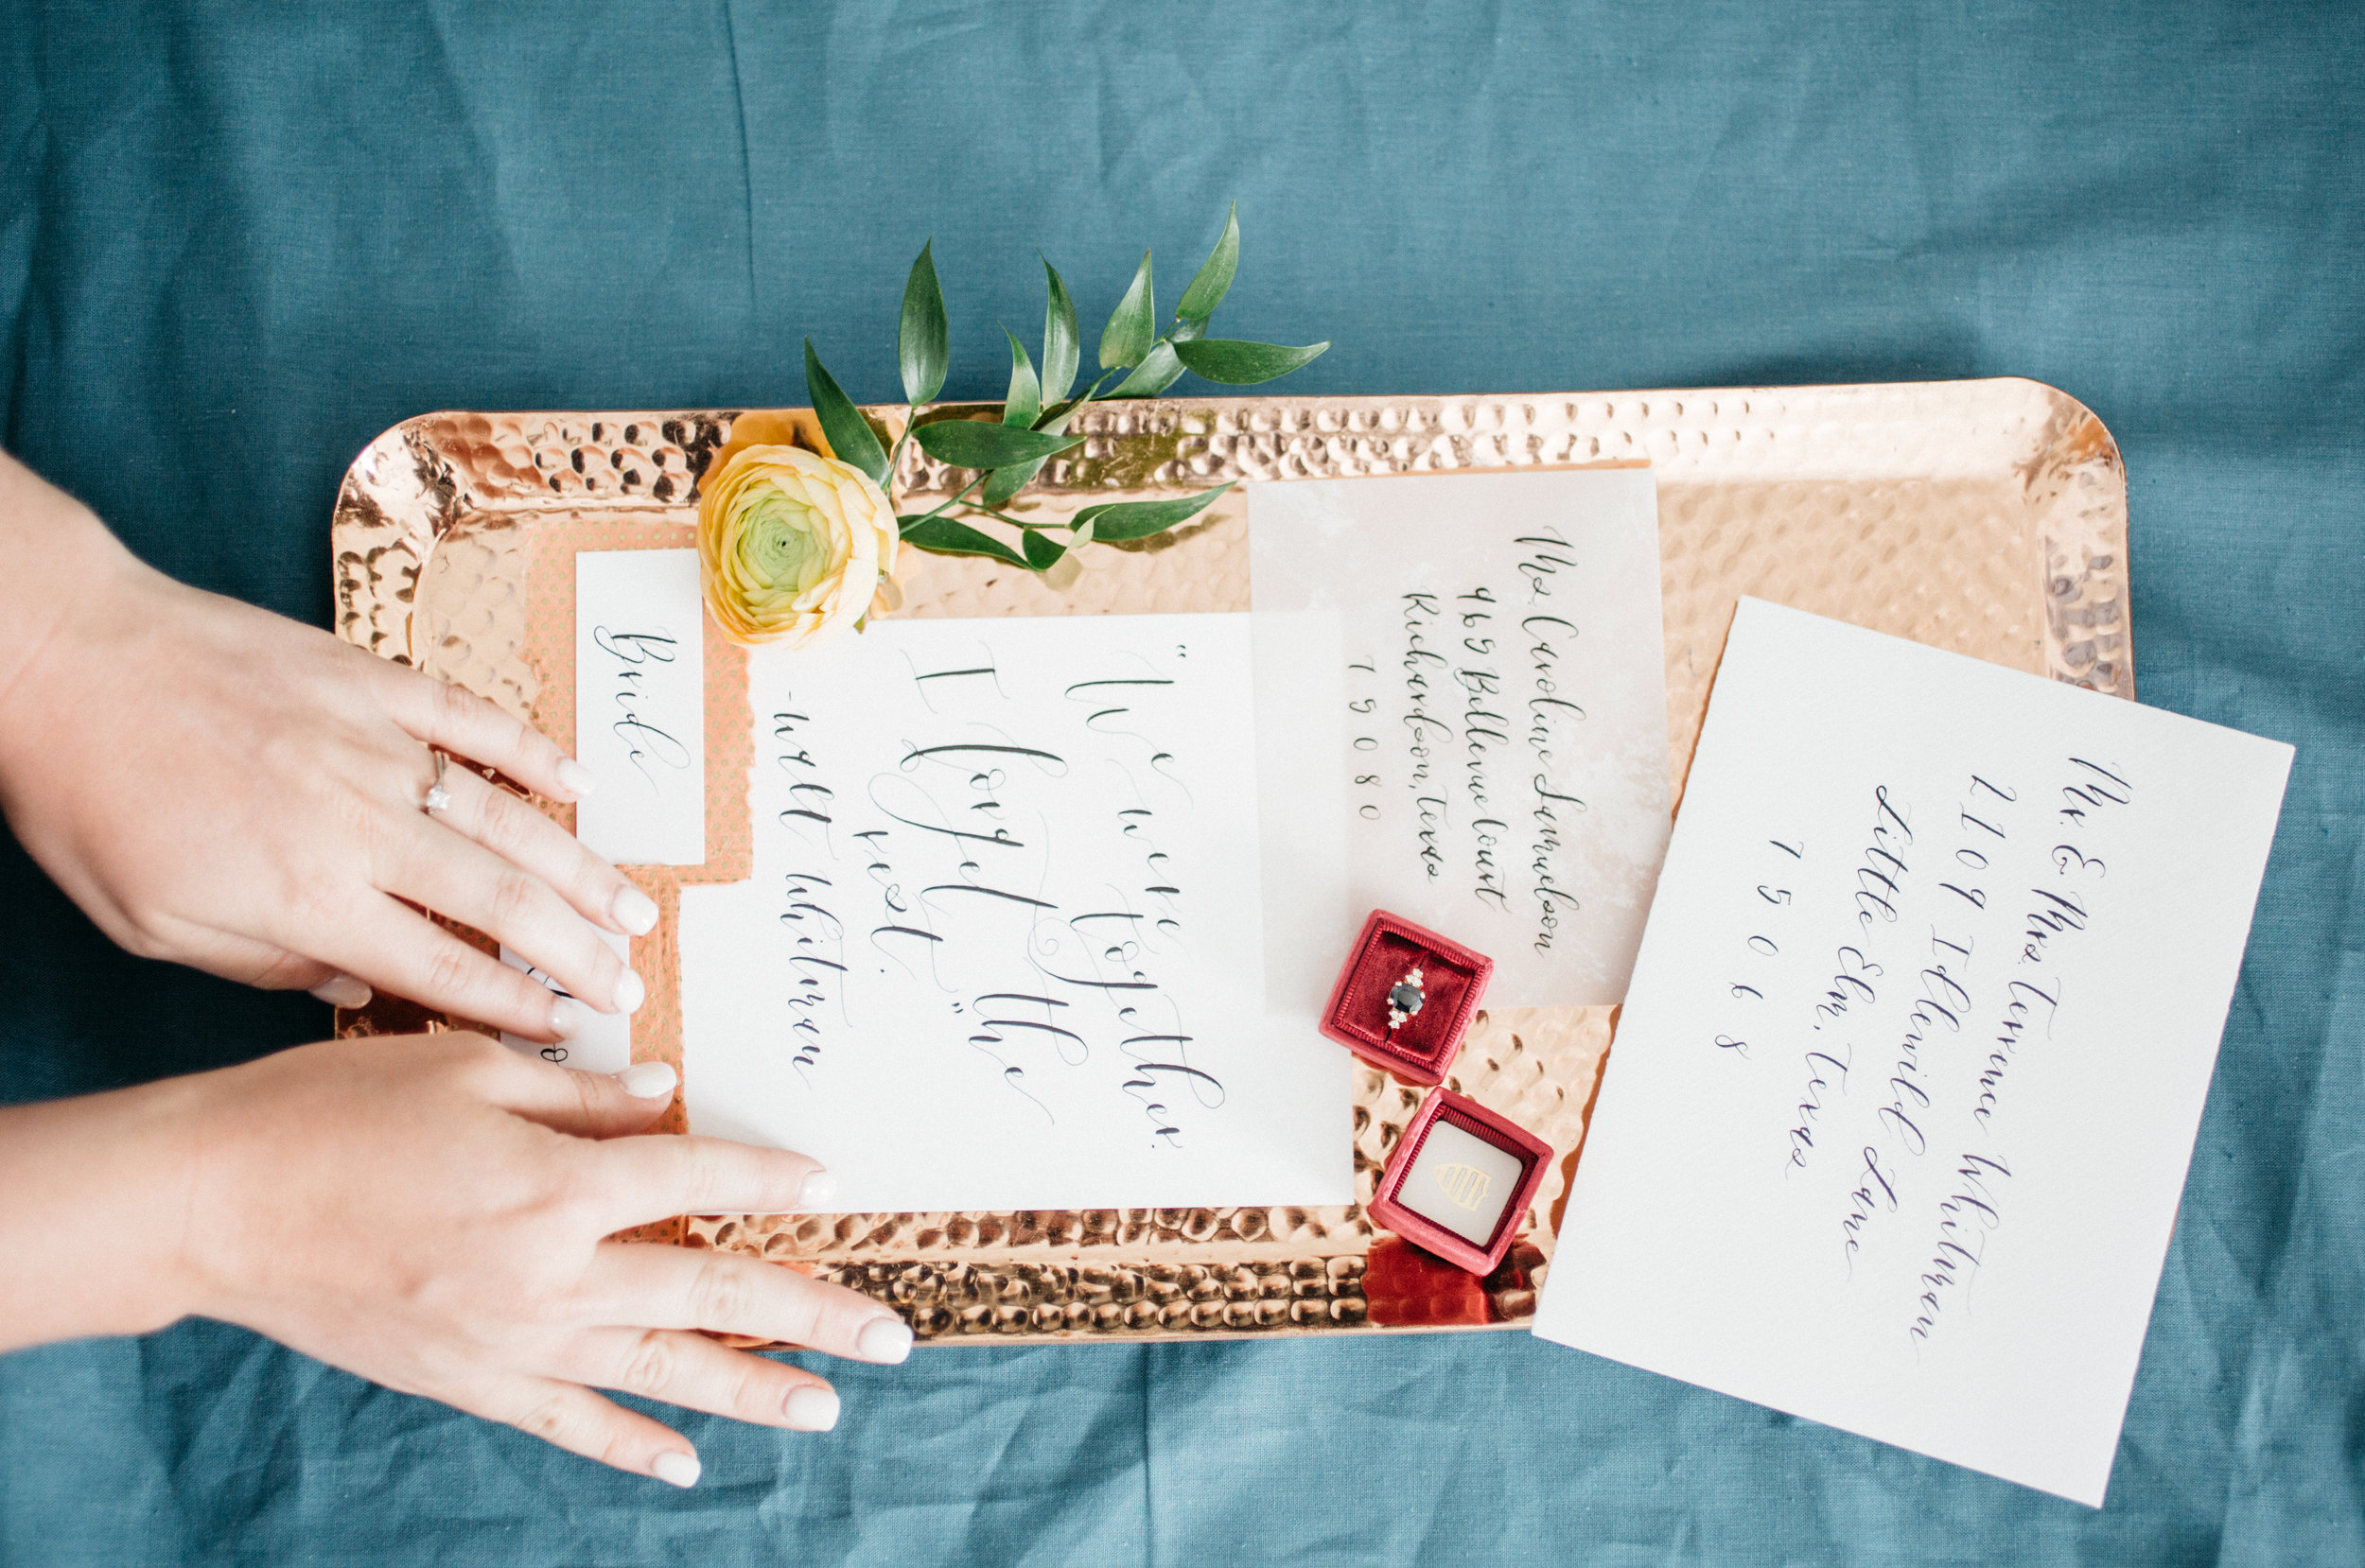 Bride
"We were together.
I forget the
rest."
-Walt Whitman
Ms. Caroline Samuelson
4969 Bellevue Court
Richardson, Texas
79080
Mr. & Mrs. Terrence Whitman
2109 Idlewild Lane
Little Elm, Texas
75068